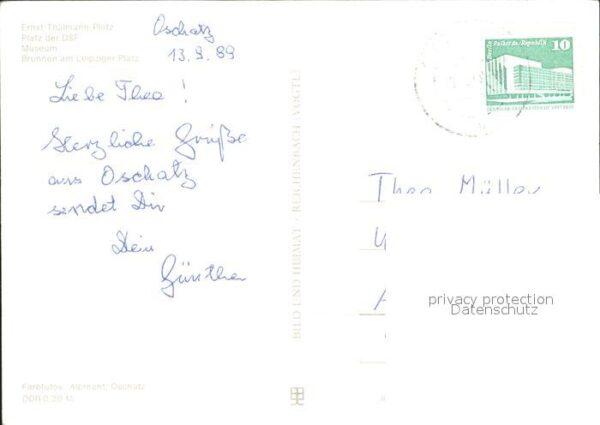 Ernst-Thälmann-Platz
Platz der DSF
Museum
Brunnen am Leipziger Platz
Oschatz
13.9.89
Liebe Theo!
Herzliche Grüße
aus Oschatz
sendet Dir
Dein
Günther
BILD UND HEIMAT · REICHENBACH (VOGTL)
Palast der Republik
10
Theo Müller
privacy protection
Datenschutz
Farbfotos: Oschatz